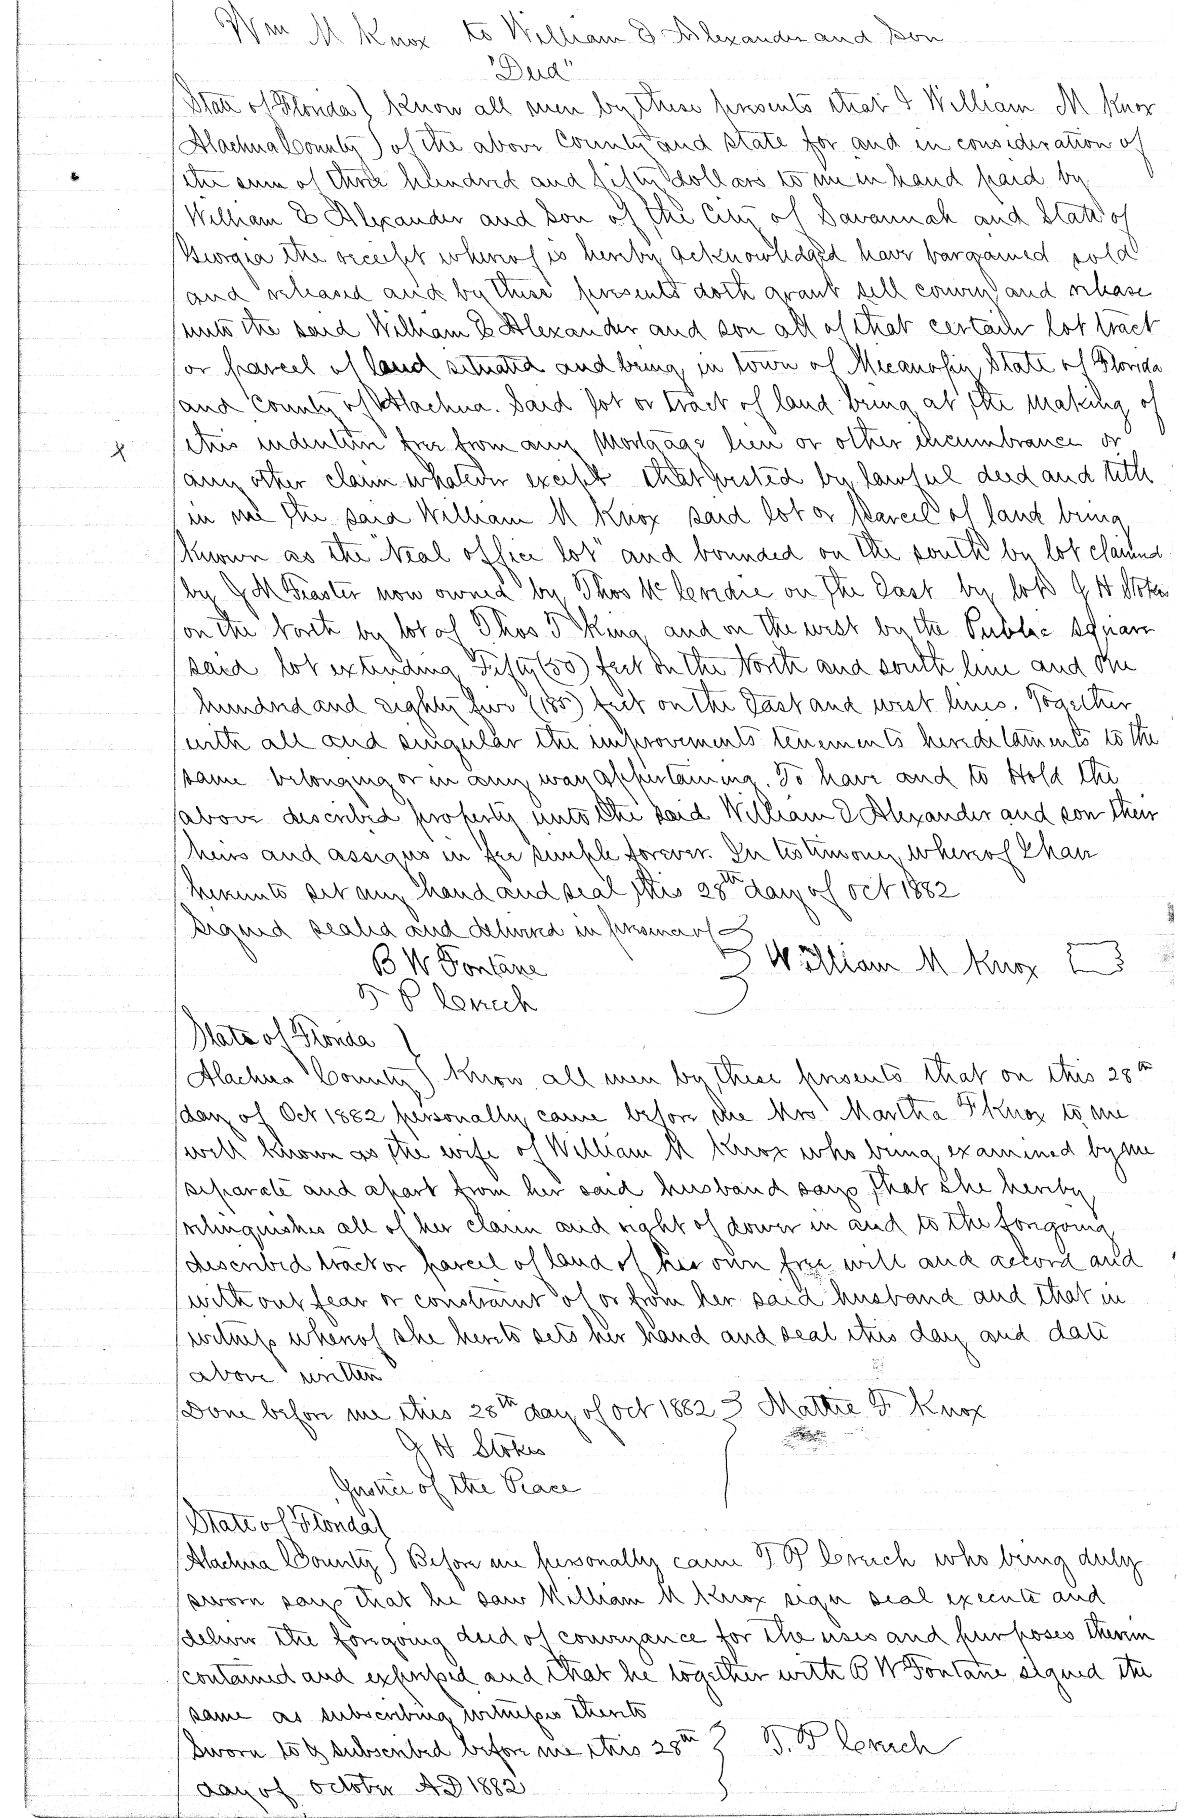 Wm M Knox to William D Alexander and Son
"Deed"
State of Florida) Know all men by these presents that I William M Knox
Alachua County) of the above County and State for and in consideration of
the sum of three hundred and fifty dollars to me in hand paid by
William D Alexander and Son of the City of Savannah and State of
Georgia the receipt whereof is hereby acknowledged have bargained sold
and released and by these presents doth grant sell convey and release
unto the said William D Alexander and son all of that certain lot tract
or parcel of land situated and being in town of Micanopy State of Florida
and County of Alachua. Said lot or tract of land being at the making of
this indenture free from any Mortgage lien or other incumbrance or
any other claim whatever except that vested by lawful deed and title
in me the said William M Knox said lot or parcel of land being
known as the "Neal office lot" and bounded on the south by lot claimed
by J M Feaster now owned by Thos Mc on the East by lot G H Stokes
on the North by lot of Thos T King and on the west by the Public Square
said lot extending Fifty (50) feet on the North and south line and One
hundred and eighty five (185) feet on the East and west lines. Together
with all and singular the improvements tenements hereditaments to the
same belonging or in any way appertaining. To have and to Hold the
above described property unto the said William D Alexander and son their
heirs and assigns in fee simple forever. In testimony whereof I have
hereunto set my hand and seal this 28th day of Oct 1882
Signed sealed and delivered in presence of
B W Fontane William M Knox
T P
State of Florida )
Alachua County ) Know all men by these presents that on this 28th
day of Oct 1882 personally came before me Mrs Martha F Knox to me
well known as the wife of William M Knox who being examined by me
separate and apart from her said husband says that she hereby
relinquishes all of her claim and right of dower in and to the foregoing
described tract or parcel of land of her own free will and accord and
without fear or constraint of or from her said husband and that in
witness whereof she hereto sets her hand and seal this day and date
above written
Done before me this 28th day of Oct 1882 Mattie F Knox
G H Stokes
Justice of the Peace
State of Florida)
Alachua County ) Before me personally came T P who being duly
sworn says that he saw William M Knox sign seal execute and
deliver the foregoing deed of conveyance for the uses and purposes therein
contained and expressed and that he together with B W Fontane signed the
same as subscribing witnesses thereto
Sworn to & subscribed before me this 28th T. P
day of October AD 1882